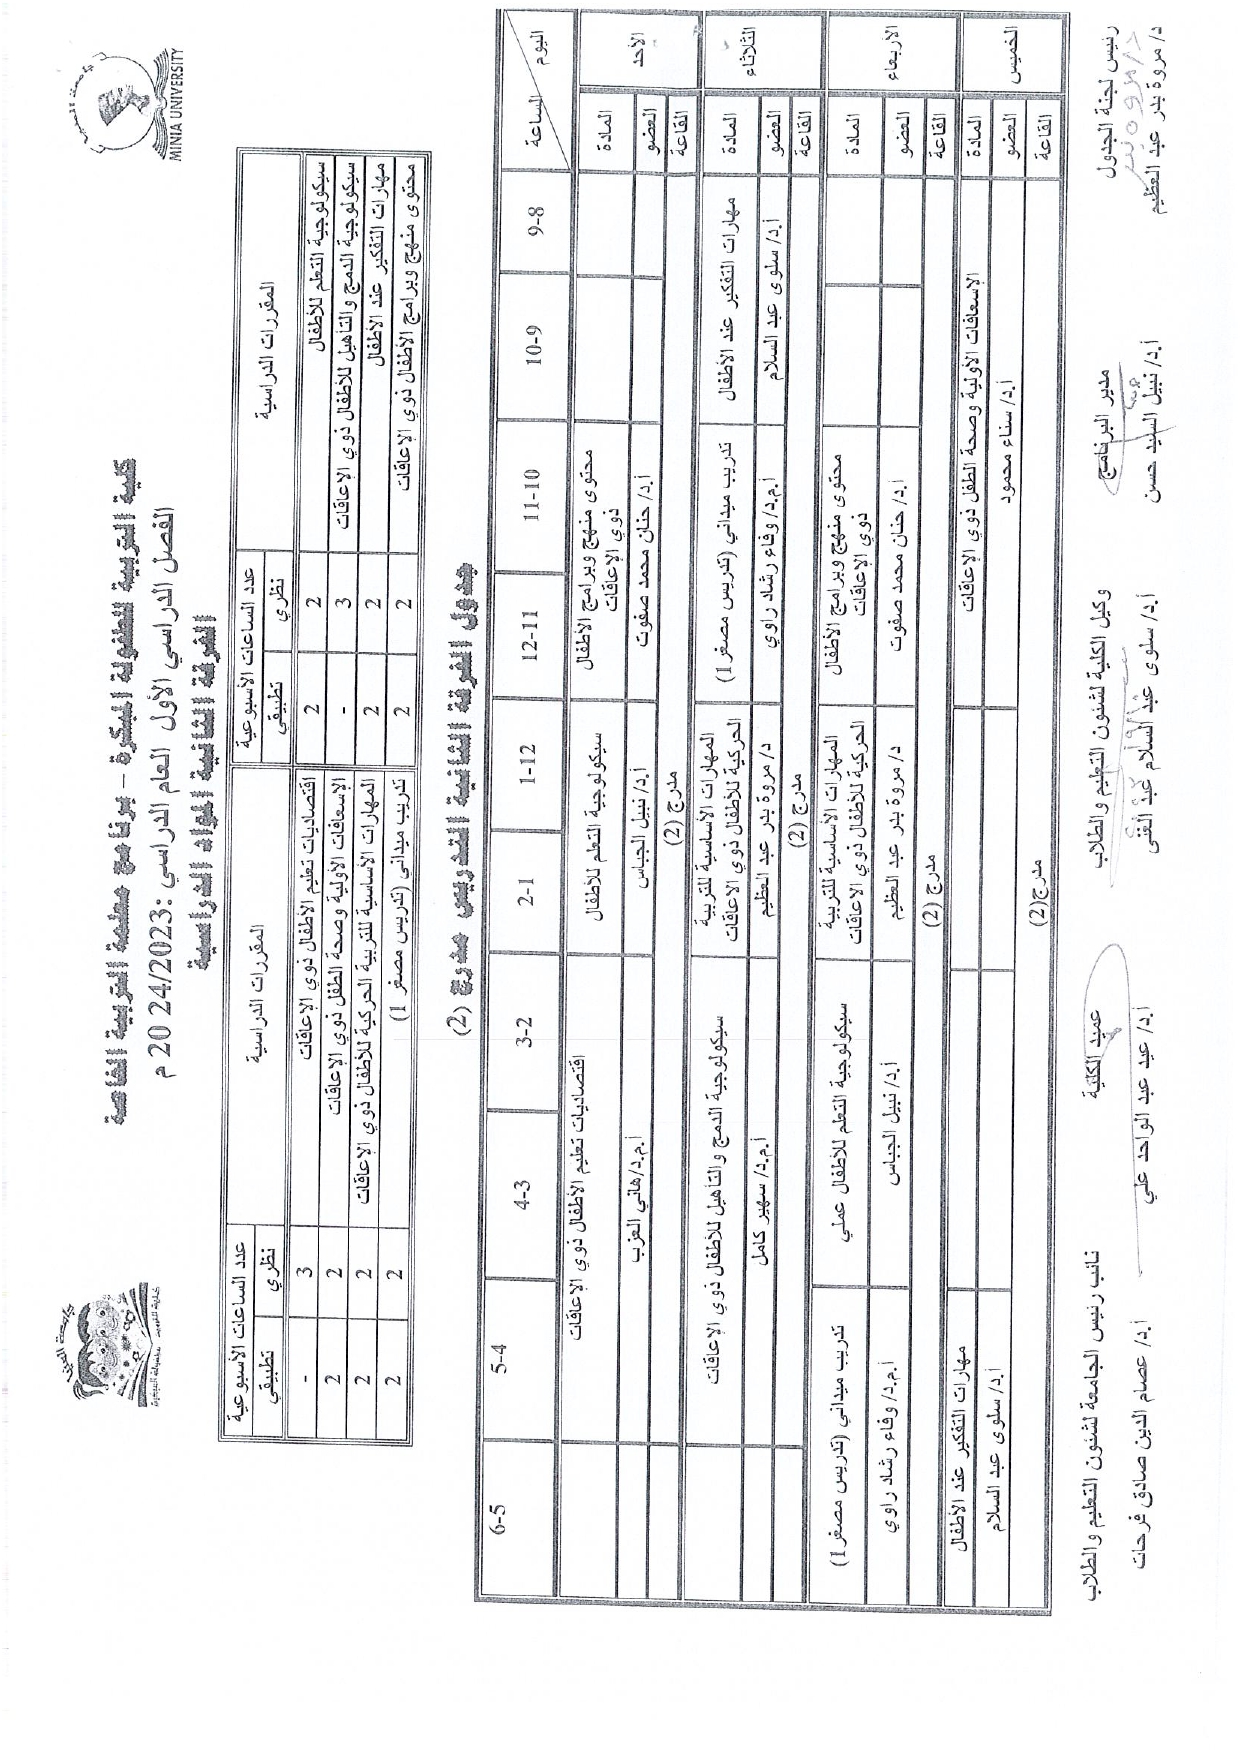 جامعة المنيا
MINIA UNIVERSITY
كلية التربية للطفولة المبكرة – برنامج معلمة التربية الخاصة
الفصل الدراسي الأول العام الدراسي :2023/24 20 م
الفرقة الثانية المواد الدراسية
المقررات الدراسية | عدد الساعات الأسبوعية | المقررات الدراسية | عدد الساعات الأسبوعية
نظري | تطبيقي | نظري | تطبيقي
سيكولوجية التعلم للأطفال | 2 | 2 | اقتصاديات تعليم الأطفال ذوي الإعاقات | 3 | -
سيكولوجية الدمج والتأهيل للأطفال ذوي الإعاقات | 3 | - | الإسعافات الأولية وصحة الطفل ذوي الإعاقات | 2 | 2
مهارات التفكير عند الأطفال | 2 | 2 | المهارات الأساسية للتربية الحركية للأطفال ذوي الإعاقات | 2 | 2
محتوى منهج وبرامج الأطفال ذوي الإعاقات | 2 | 2 | تدريب ميداني (تدريس مصغر 1) | 2 | 2
جدول الفرقة الثانية التدريس مدرج (2)
اليوم | الساعة | 9-8 | 10-9 | 11-10 | 12-11 | 1-12 | 2-1 | 3-2 | 4-3 | 5-4 | 6-5
الأحد | المادة | محتوى منهج وبرامج الأطفال ذوي الإعاقات | سيكولوجية التعلم للأطفال | اقتصاديات تعليم الأطفال ذوي الإعاقات
العضو | أ.د/ حنان محمد صفوت | أ.د/ نبيل الجباس | أ.م.د/هاني العزب
القاعة | مدرج (2)
الثلاثاء | المادة | مهارات التفكير عند الأطفال | تدريب ميداني (تدريس مصغر1) | المهارات الأساسية للتربية الحركية للأطفال ذوي الاعاقات | سيكولوجية الدمج والتأهيل للأطفال ذوي الإعاقات
العضو | أ.د/ سلوى عبد السلام | أ.م.د/ وفاء رشاد راوي | د/ مروة بدر عبد العظيم | أ.م.د/ سهير كامل
القاعة | مدرج (2)
الاربعاء | المادة | محتوى منهج وبرامج الأطفال ذوي الإعاقات | المهارات الاساسية للتربية الحركية للأطفال ذوي الاعاقات | سيكولوجية التعلم للأطفال عملي | تدريب ميداني (تدريس مصغر1)
العضو | أ.د/ حنان محمد صفوت | د/ مروة بدر عبد العظيم | أ.د/ نبيل الجباس | أ.م.د/ وفاء رشاد راوي
القاعة | مدرج (2)
الخميس | المادة | الإسعافات الأولية وصحة الطفل ذوي الإعاقات | مهارات التفكير عند الأطفال
العضو | أ.د/ سناء محمود | أ.د/ سلوى عبد السلام
القاعة | مدرج(2)
رئيس لجنة الجدول | مدير البرنامج | وكيل الكلية لشئون التعليم والطلاب | عميد الكلية | نائب رئيس الجامعة لشئون التعليم والطلاب
د/ مروة بدر عبد العظيم | أ.د/ نبيل السيد حسن | أ.د/ سلوى عبد السلام عبد الغنى | أ.د/ عيد عبد الواحد علي | أ.د/ عصام الدين صادق فرحات